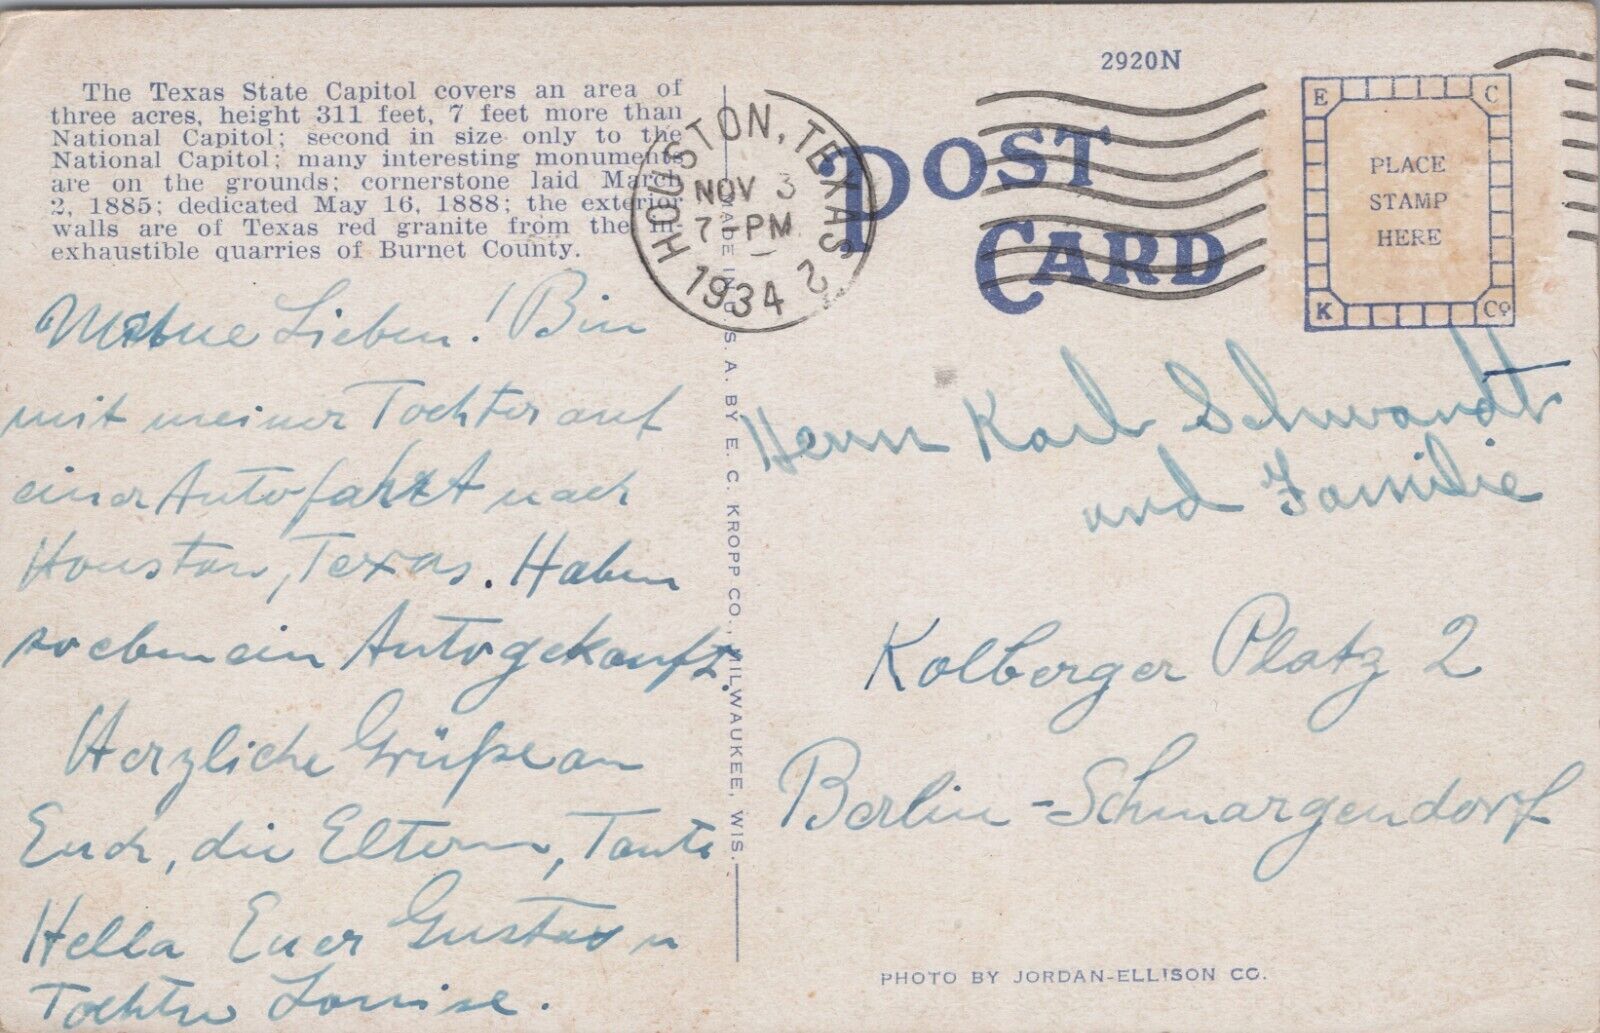 The Texas State Capitol covers an area of
three acres, height 311 feet, 7 feet more than
National Capitol; second in size only to the
National Capitol; many interesting monuments
are on the grounds; cornerstone laid March
2, 1885; dedicated May 16, 1888; the exterior
walls are of Texas red granite from the in-
exhaustible quarries of Burnet County.
Meine Lieben! Bin
mit meiner Tochter auf
einer Autofahrt nach
Houston, Texas. Haben
soeben ein Auto gekauft.
Herzliche Grüße an
Euch, die Eltern, Tante
Hella Euer Gustav u
Tochter Louise.
MADE IN U. S. A. BY E. C. KROPP CO., MILWAUKEE, WIS.
HOUSTON, TEXAS 2
NOV 3
7-PM
1934
2920N
POST
CARD
E C
PLACE
STAMP
HERE
K Co
Herrn Karl Schwandt
und Familie
Kolberger Platz 2
Berlin-Schmargendorf
PHOTO BY JORDAN-ELLISON CO.